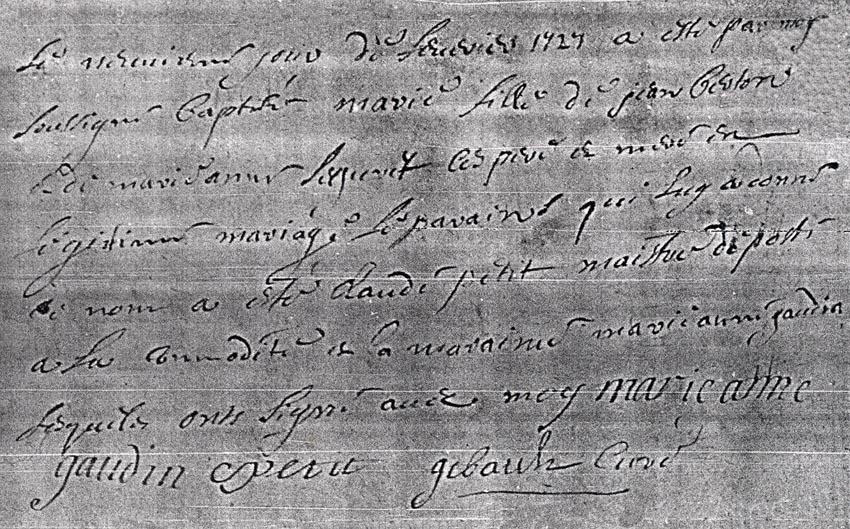 Le neuvieme jour de fevrier 1727 a esté par moy
soussigné baptisée marie fille de jean
& de marie anne les pere et mere en
legitime mariage le parain qui luy a donné
le nom a esté claude petit maistre de poste
a la commodité et la maraine marie anne gaudin
lesquels onts signé avec moy marie anne
gaudin C petit gibault Curé